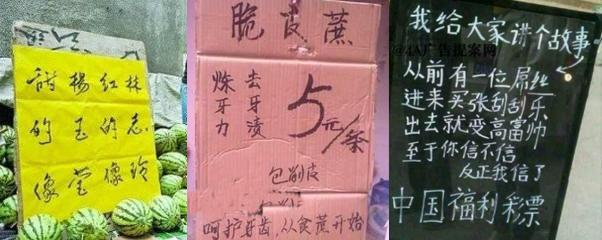 甜的像
楊玉莹
红的像
林志玲
脆皮蔗
去牙渍
炼牙力
5元/条
包削皮
呵护牙齿,从食蔗开始
我给大家讲个故事
@4A广告提案网
从前有一位屌丝
进来买张刮刮乐
出去就变高富帅
至于你信不信
反正我信了
中国福利彩票